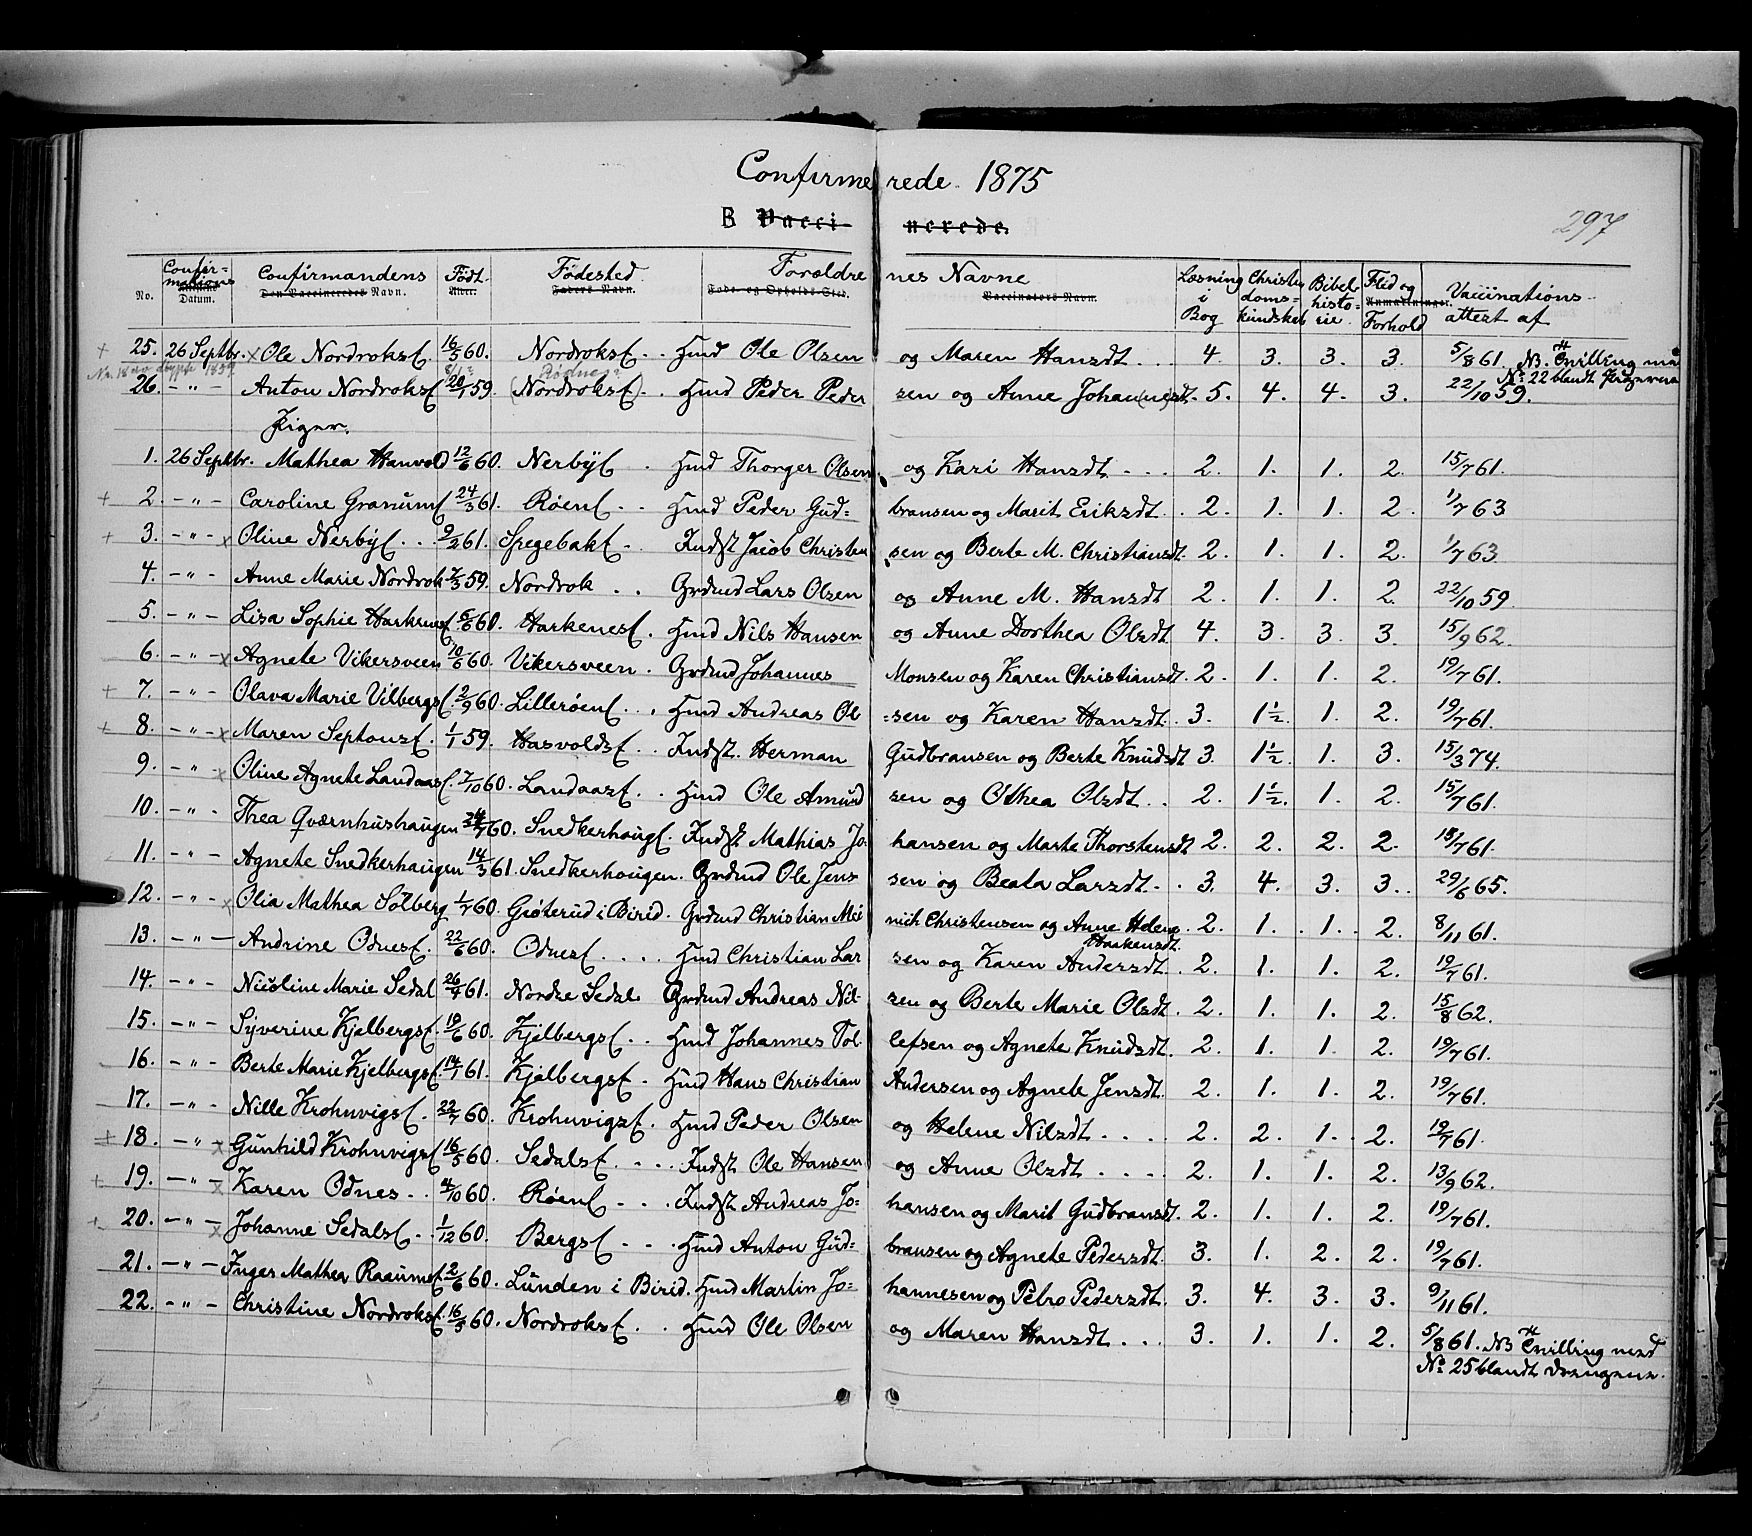 Confirmerede. 1875
B Vaccinerede.
297
No. Confirmations Datum. Confirmandens Navn. Født. Fødested Forældrenes Navne Læsning i Bog Christendomskundskab Bibelhistorie Flid og Forhold Vaccinationsattest af
25. 26 Septbr. Ole Nordroks 16/5 60. Nordroks Hmd Ole Olsen og Maren Hansdt. 4. 3. 3. 3. 5/8 61. NB. Tvilling med No. 22 blandt Pigerne
26. - " - Anton Nordroks 20/7 59. Nordroks Hmd Peder Pedersen og Anne Johannesdt. 5. 4. 4. 3. 22/10 59.
Piger.
1. 26 Septbr. Mathea Hanvold 12/6 60. Nerby Hmd Thorger Olsen og Kari Hansdt. 2. 1. 1. 2. 15/7 61.
2. - " - Caroline Granum 24/3 61. Røen Hmd Peder Gudbransen og Marit Eriksdt. 2. 1. 1. 2. 1/7 63
3. - " - Oline Nerby 9/2 61. Spegebak Indst Jacob Christensen og Berte M. Christiansdt. 2. 1. 1. 2. 1/7 63.
4. - " - Anne Marie Nordrok 7/3 59. Nordrok Grdmd Lars Olsen og Anne M. Hansdt 2. 1. 1. 2. 22/10 59.
5. - " - Lisa Sophie Harkenes 5/6 60. Harkenes Hmd Nils Hansen og Anne Dorthea Olsdt. 4. 3. 3. 3. 15/9 62.
6. - " - Agnete Vikersveen 10/6 60. Vikersveen Grdmd Johannes Monsen og Karen Christiansdt. 2. 1. 1. 2. 19/7 61.
7. - " - Olava Marie Vilbergs 2/9 60. Lillerøen Hmd Andreas Olsen og Karen Hansdt. 3. 1½. 1. 2. 19/7 61.
8. - " - Maren Septons 1/1 59. Hasvolds Indst. Herman Gudbransen og Berte Knudsdt 3. 1½. 1. 3. 15/3 74.
9. - " - Oline Agnete Landaas 7/10 60. Landaas Hmd Ole Amundsen og Othea Olsdt. 2. 1½. 1. 2. 15/7 61.
10. - " - Thea Qværnhushaugen 60. Snedkerhoug Indst Mathias Johansen og Marte Thorstensdt 2. 2. 2. 2. 15/7 61.
11. - " - Agnete Snedkerhaugen 14/3 61. Snedkerhougen. Grdmd Ole Jensen og Beata Larsdt. 3. 4. 3. 3. 29/6 65.
12. - " - Olia Mathea Solberg 1/7 60. Grøterud i Birid. Grdmd Christian Meinich Christensen og Anne Helene Haakensdt. 2. 1. 1. 2. 8/11 61.
13. - " - Andrine Odnes 22/6 60. Odnes Hmd Christian Larsen og Karen Andersdt. 2. 1. 1. 2. 19/7 61.
14. - " - Nicoline Marie Sedal 26/4 61. Nordre Sedal Grdmd Andreas Nilsen og Berte Marie Olsdt. 2. 1. 1. 2. 15/8 62.
15. - " - Syverine Kjelbergs 19/6 60. Kjelbergs Hmd Johannes Tollefsen og Agnete Knudsdt. 2. 1. 1. 2. 19/7 61.
16. - " - Berte Marie Kjelbergs 14/1 61. Kjelbergs Hmd Hans Christian Andersen og Agnete Jensdt. 2. 1. 1. 2. 19/7 61.
17. - " - Nille Krohnvigs 22/7 60. Krohnvigs Hmd Peder Olsen og Helene Nilsdt. 2. 2. 1. 2. 19/7 61.
18. - " - Gunhild Krohnvigs 16/5 60. Sedals Indst. Ole Hansen og Anne Olsdt. 2. 1. 1. 2. 13/9 62.
19. - " - Karen Odnes 4/10 60. Røen Indst Andreas Johansen og Marit Gudbransdt. 2. 1. 1. 2. 19/7 61.
20. - " - Johanne Sedals 1/12 60. Bergs Hmd Anton Gudbransen og Agnete Pedersdt. 3. 1. 2. 2. 19/7 61.
21. - " - Inger Mathea Raaum 2/6 60. Lunden i Birid. Hmd Martin Johannesen og Petro Pedersdt. 3. 4. 3. 3. 9/11 61.
22. - " - Christine Nordroks 16/5 60. Nordroks Hmd Ole Olsen og Maren Hansdt. 3. 1. 1. 2. 5/8 61. NB Tvilling med
No. 25 blandt Drengene.